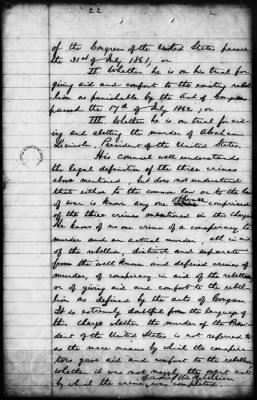 22
of the Congress of the United States passed
the 31st of July 1861, or
II Whether he is on his trial for
giving aid and comfort to the existing rebel-
lion as punishable by the Act of Congress
passed the 17th of July 1862, or
III. Whether he is on trial for aid-
ing and abetting the murder of Abraham
Lincoln, President of the United States.
His counsel well understands
the legal definition of the three crimes
above mentioned, but does not understand
that either to the common law or to the law
of war is known any one offence comprised
of the three crimes mentioned in the charge
He knows of no one crime of a conspiracy to
murder and an actual murder, all in aid
of the rebellion, distinct and separate
from the well known and defined crimes of
murder, of conspiracy in aid of the rebellion
or of giving aid and comfort to the rebel-
lion as defined by the acts of Congress
It is extremely doubtful from the language of
this charge whether the murder of the Presi-
dent of the United States is not referred to
as the mere means by which the conspira-
tors gave aid and comfort to the rebellion
whether it was not merely the overt act
by which the crime was completed